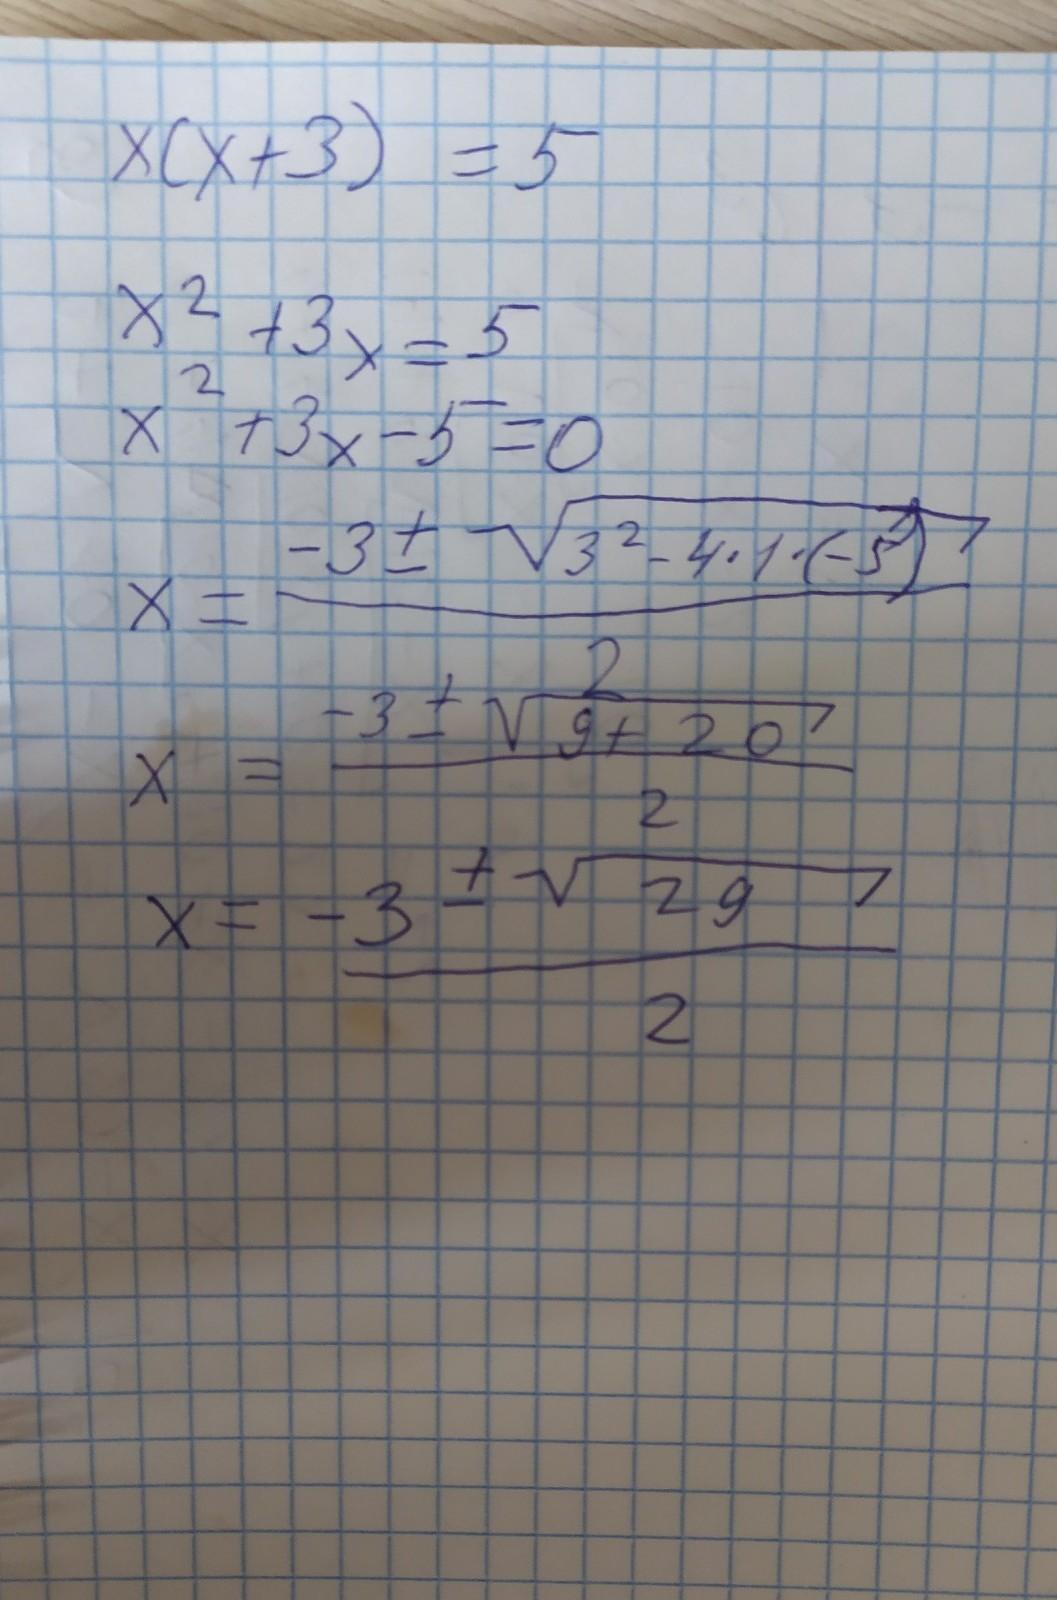 x(x+3) = 5
x² +3x = 5
x² +3x-5=0
x = (-3 ± √(3²-4·1·(-5))) / 2
x = (-3 ± √(9+20)) / 2
x = (-3 ± √29) / 2